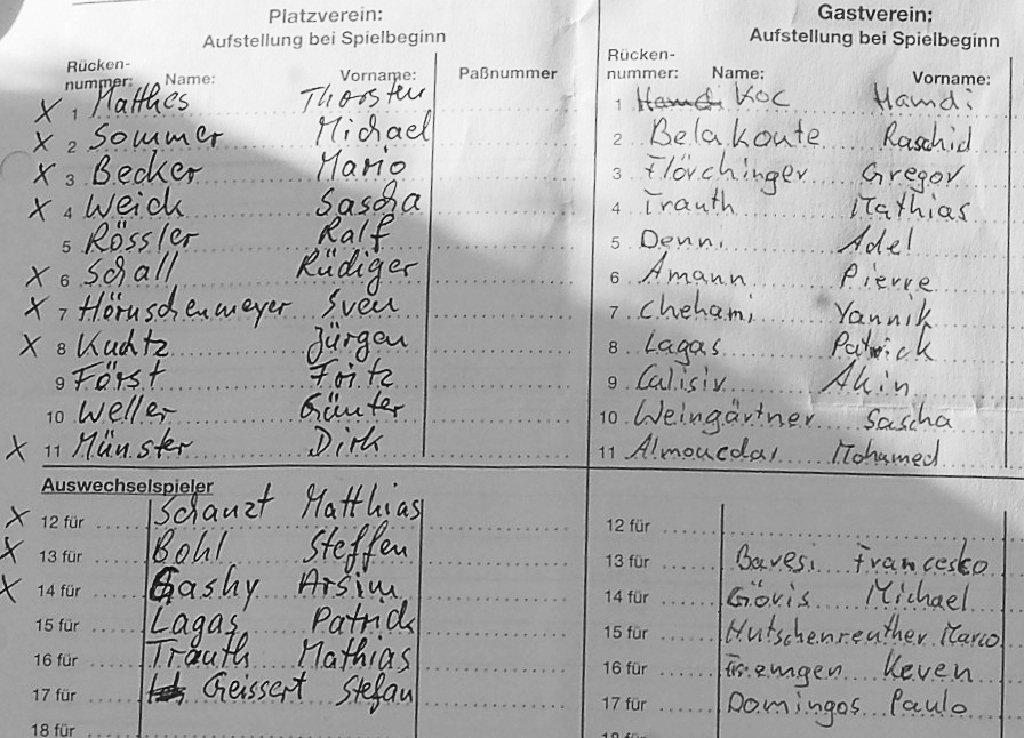 Platzverein:
Aufstellung bei Spielbeginn
Rücken-
nummer: Name: Vorname: Paßnummer
X 1 Matthes Thorsten
X 2 Sommer Michael
X 3 Becker Mario
X 4 Weick Sascha
5 Rössler Ralf
X 6 Schall Rüdiger
X 7 Hörnschenmeyer Sven
X 8 Kuchtz Jürgen
9 Först Fritz
10 Weller Günter
X 11 Münster Dirk
Auswechselspieler
X 12 für Schanzt Matthias
X 13 für Bohl Steffen
X 14 für Gashy Arsim
15 für Lagas Patrick
16 für Trauth Mathias
17 für Geissert Stefan
18 für
Gastverein:
Aufstellung bei Spielbeginn
Rücken-
nummer: Name: Vorname:
1 Hamdi Koc Hamdi
2 Belakoute Raschid
3 Flörchinger Gregor
4 Trauth Mathias
5 Denni Adel
6 Amann Pierre
7 Chehami Yannik
8 Lagas Patrick
9 Calisir Akin
10 Weingärtner Sascha
11 Mohamed
12 für
13 für Baresi Francesko
14 für Göris Michael
15 für Hutschenreuther Marco
16 für Keven
17 für Domingos Paulo